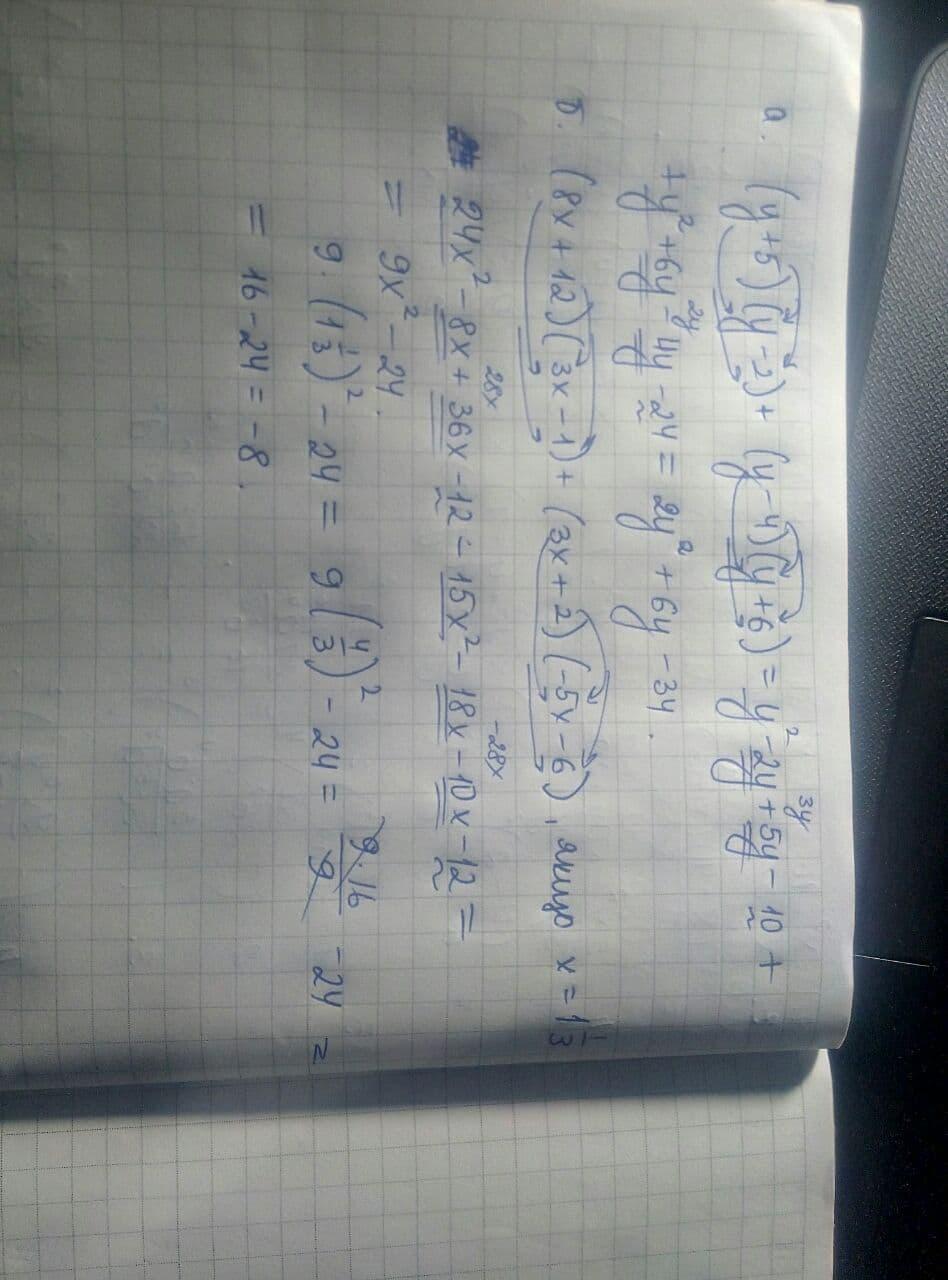 а. (y+5)(y-2) + (y-4)(y+6) = y² - 2y + 5y - 10 +
3y
+ y² + 6y - 4y - 24 = 2y² + 6y - 34.
2y
б. (8x + 12)(3x - 1) + (3x + 2)(-5x - 6), якщо x = 1 1/3
24x² - 8x + 36x - 12 - 15x² - 18x - 10x - 12 =
28x -28x
= 9x² - 24.
9·(1 1/3)² - 24 = 9(4/3)² - 24 = 9·16/9 - 24 =
= 16 - 24 = -8.